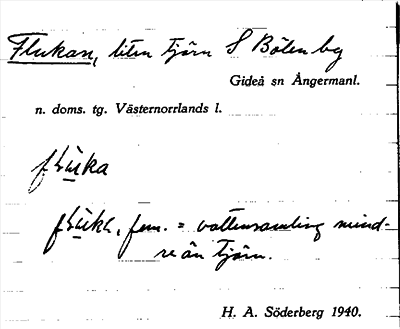 Flukan, liten tjärn S Bölen by
Gideå sn Ångermanl.
n. doms. tg. Västernorrlands l.
fłu̲ka
fłu̲ka, fem. = vattensamling mind-
re än tjärn.
H. A. Söderberg 1940.